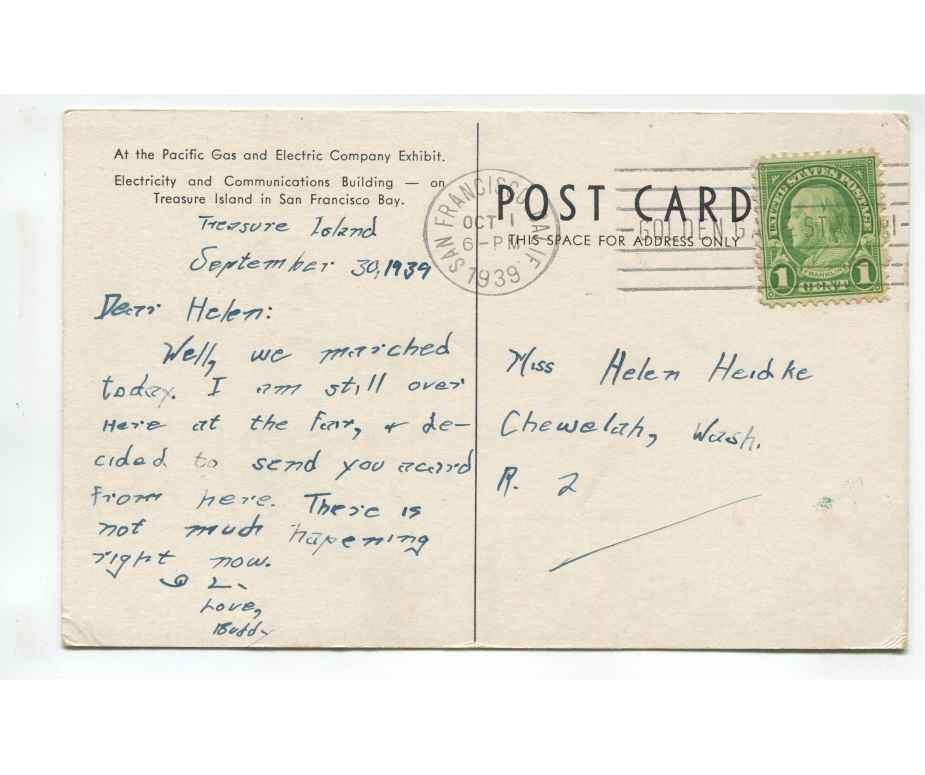 At the Pacific Gas and Electric Company Exhibit.
Electricity and Communications Building — on
Treasure Island in San Francisco Bay.
Treasure Island
September 30, 1939
Dear Helen:
Well, we marched
today. I am still over
Here at the Fair, & de-
cided to send you a card
From here. There is
not much hapening
right now.
Love,
Buddy
POST CARD
THIS SPACE FOR ADDRESS ONLY
SAN FRANCISCO, CALIF.
OCT 1
6-PM
1939
GOLDEN GA
UNITED STATES POSTAGE
FRANKLIN
1 CENT 1
Miss Helen Heidke
Chewelah, Wash.
R. 2